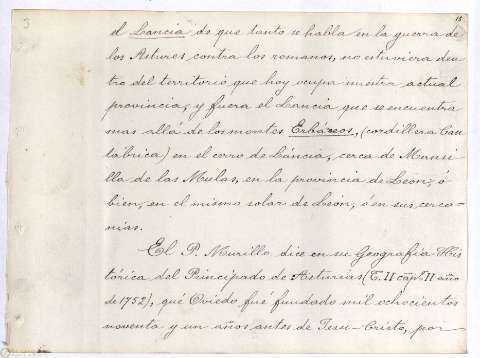 15
el Lancia de que tanto se habla en la guerra de
los Astures contra los romanos, no estuviera den-
tro del territorio que hoy ocupa nuestra actual
provincia, y fuera el Lancia que se encuentra
mas allá de los montes Erbáseos, (cordillera Can-
tábrica) en el cerro de Láncia, cerca de Mansi-
lla de las Mulas, en la provincia de León, ó
bien, en el mismo solar de León, ó en sus cerca-
nias.
El P. Murillo dice en su Geografia His-
tórica del Principado de Asturias (T. II capº. II año
de 1752), que Oviedo fué fundado mil ochocientos
noventa y un años antes de Jesu-Cristo, por